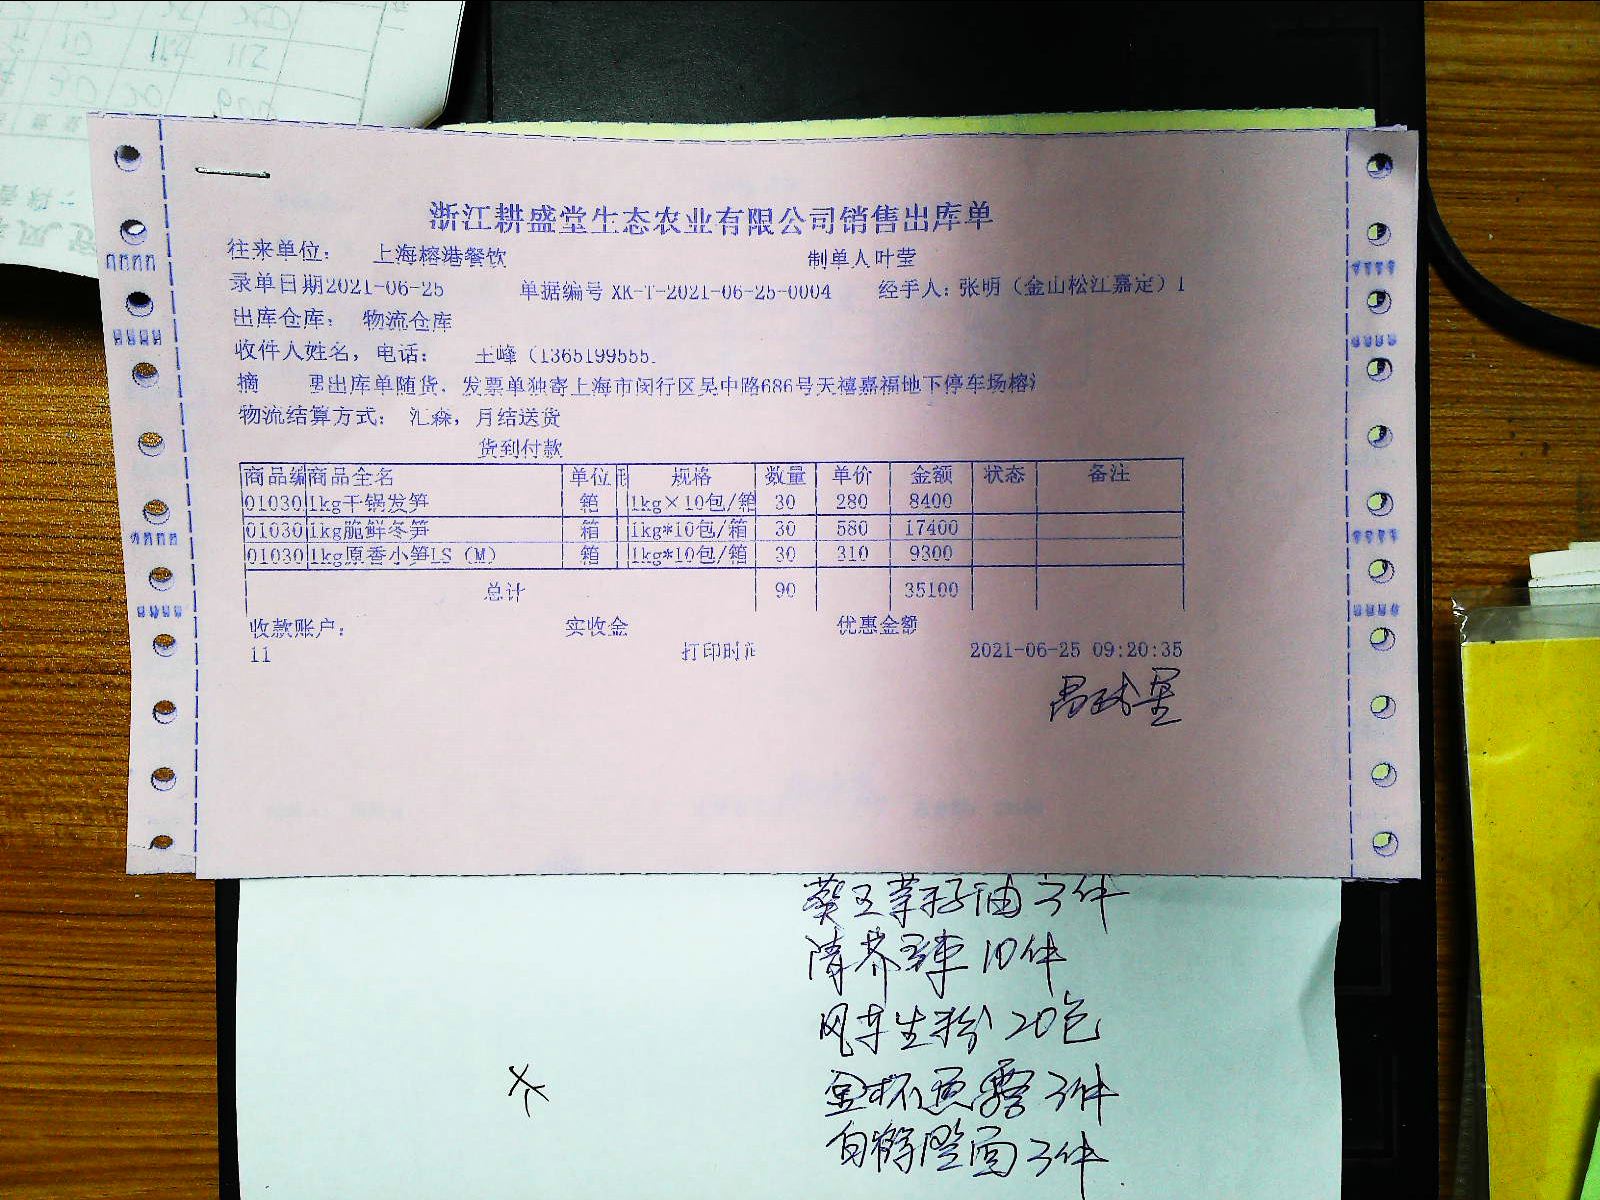 浙江耕盛堂生态农业有限公司销售出库单
往来单位: 上海榕港餐饮 制单人叶莹
录单日期2021-06-25 单据编号 XK-T-2021-06-25-0004 经手人:张明(金山松江嘉定)1
出库仓库: 物流仓库
收件人姓名,电话: 王峰(1365199555
摘 出库单随货,发票单独寄上海市闵行区吴中路686号天禧嘉福地下停车场榕
物流结算方式: 汇森,月结送货
货到付款
商品编 商品全名 单位 规格 数量 单价 金额 状态 备注
01030 1kg干锅发笋 箱 1kg×10包/箱 30 280 8400
01030 1kg脆鲜冬笋 箱 1kg*10包/箱 30 580 17400
01030 1kg原香小笋LS(M) 箱 1kg*10包/箱 30 310 9300
总计 90 35100
收款账户: 实收金 优惠金额
11 打印时 2021-06-25 09:20:35
葵王菜籽油3件
清芥辣10件
风车生粉20包
3件
白鹤 面3件